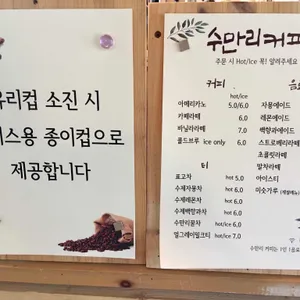 유리컵 소진 시
스용 종이컵으로
제공합니다
수만리커피
주문 시 Hot/Ice 꼭! 알려주세요
커피
hot/ice
아메리카노 5.0/6.0
카페라떼 6.0
바닐라라떼 7.0
콜드브루 ice only 6.0
티
표고차 hot 5.0
수제자몽차 hot/ice 6.0
수제레몬차 hot/ice 6.0
수제백향과차 hot/ice 6.0
수만리꽃차 hot/ice 6.0
얼그레이밀크티 hot/ice 7.0
음
자몽에이드
레몬에이드
백향과에이드
스트로베리라떼
초콜릿라떼
말차라떼
아이스티
미숫가루
수만리 커피는 1인 1음료